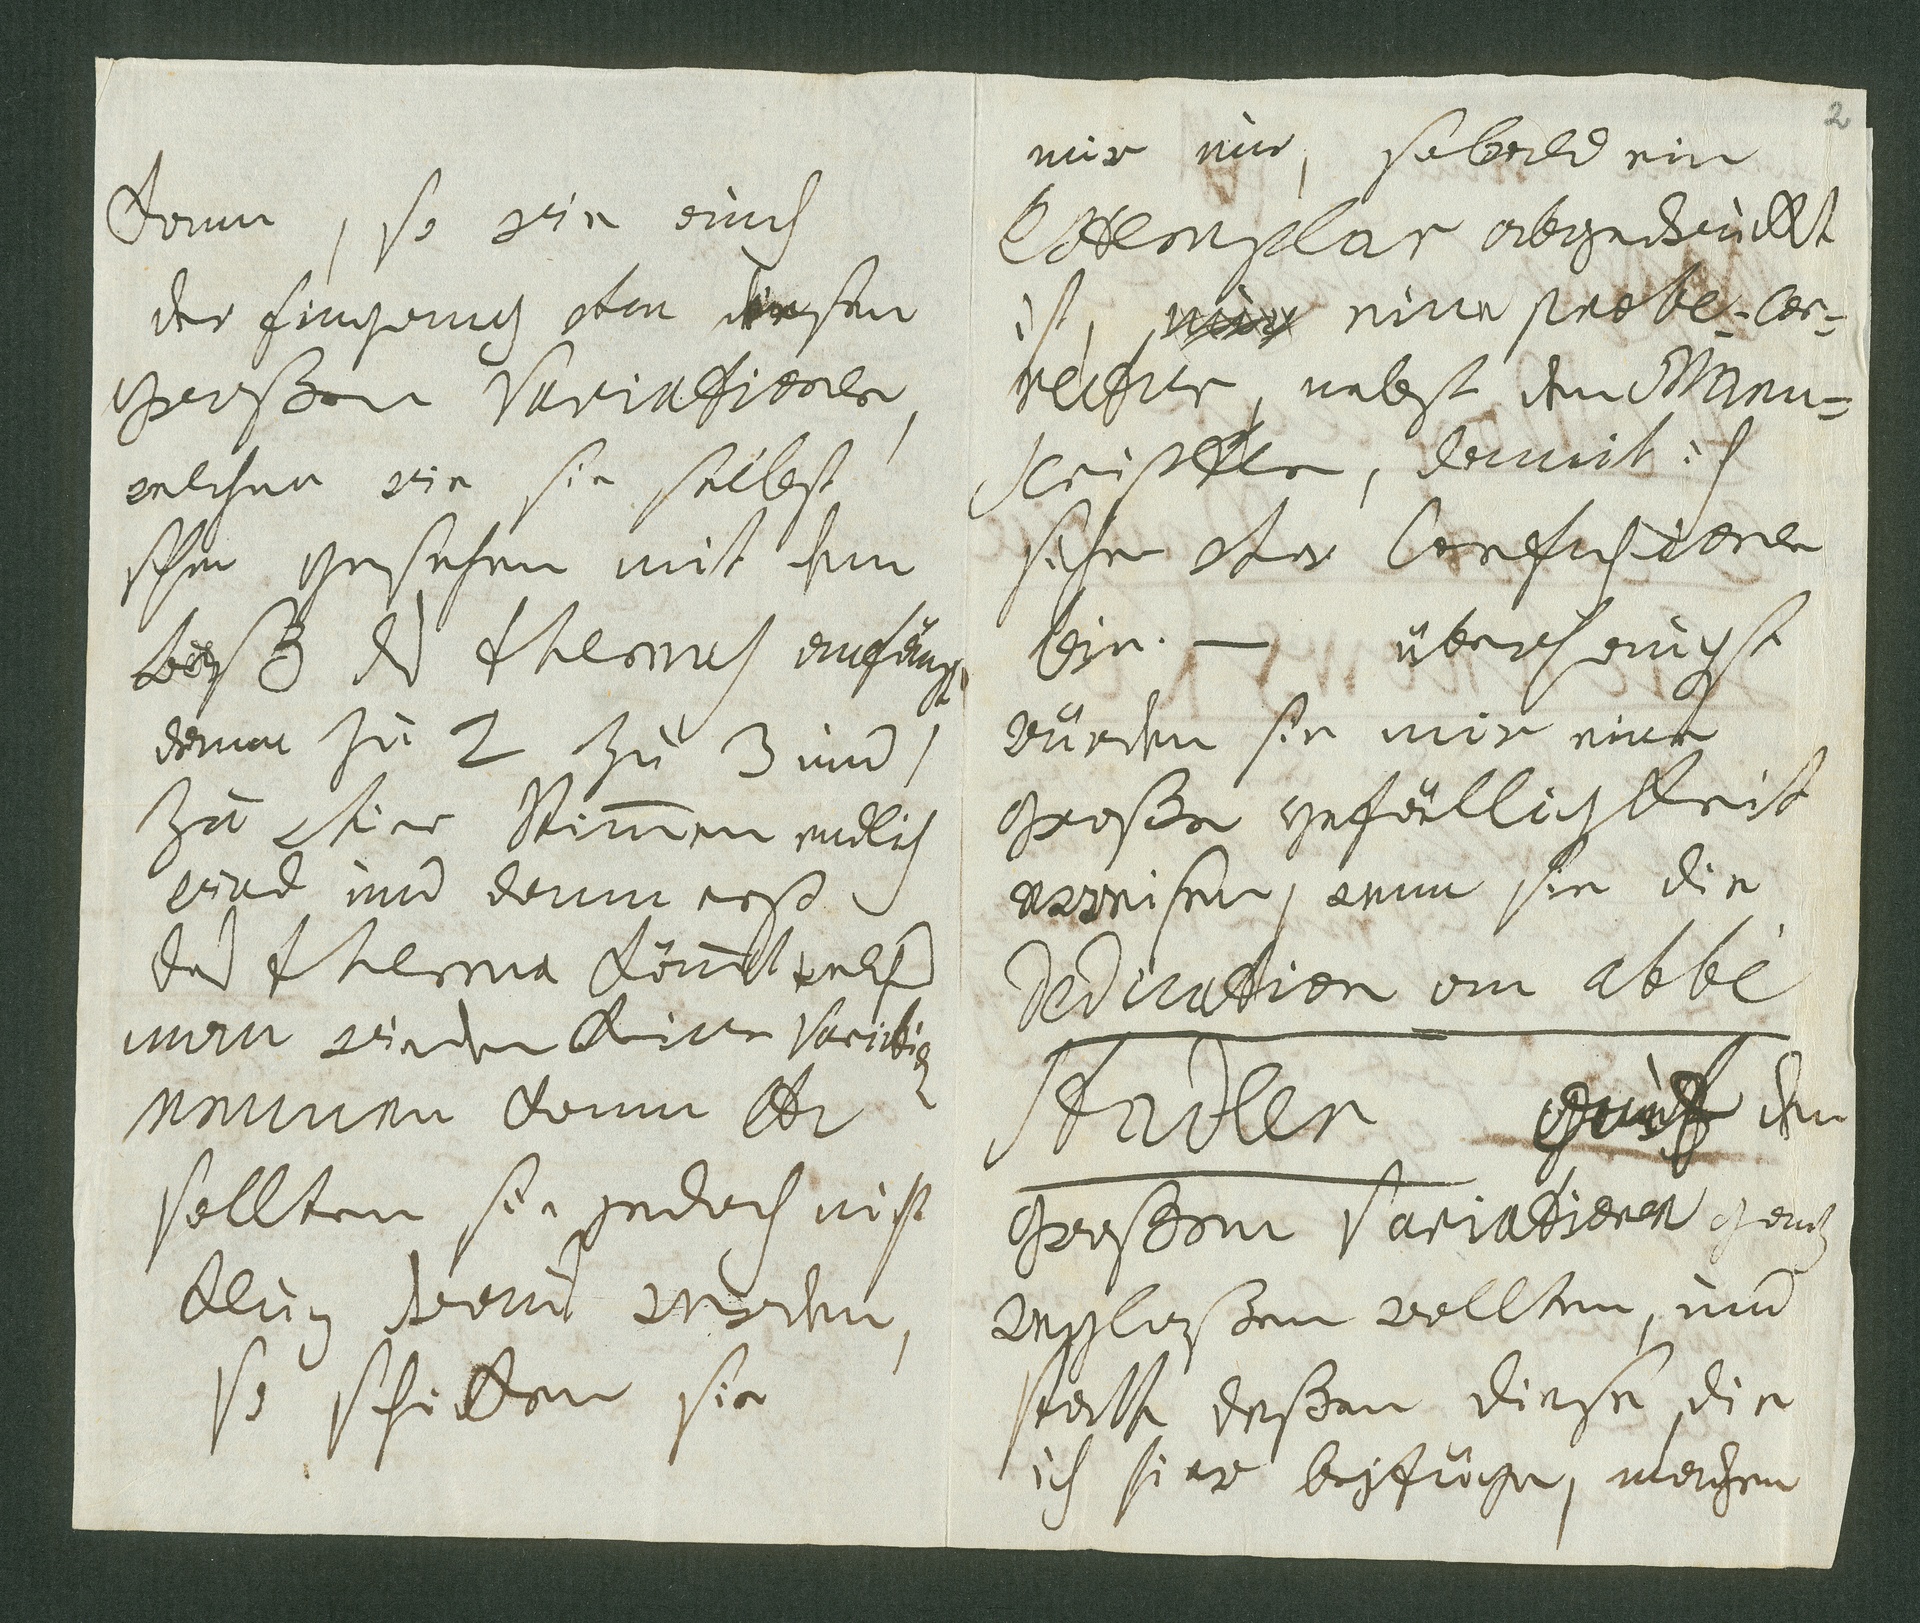 kann, so wie auch
der Eingang von diesen
großen Variationen,
welcher wie sie selbst
schon gesehen mit dem
Bass des themas anfängt,
dann zu 2 zu 3 und
zu vier Stimen endlich
wird und dann erst
das thema kömt, welches
man wieder keine Variation
nennen kann etc
sollten sie jedoch nicht
klug draus werden,
so schicken sie
2
mir nur, sobald ein
Exemplar abgedruckt
ist, eine probe-Cor-
rectur, nebst dem Manu-
scripte, damit ich
sicher vor Confusionen
bin. — überhaupt
würden sie mir eine
große gefälligkeit
erweisen, wenn sie die
Dedication an abbé
stadler auf den
großen Variationen ganz
weglaßen wollten, und
statt deßen diese, die
ich hier beyfüge, machen